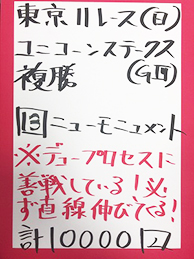 東京11レース(日)
ユニコーンステークス
複勝 (GⅢ)
13 ニューモニュメント
※デュープロセスに
善戦している！必
ず直線伸びてくる！
計10000円